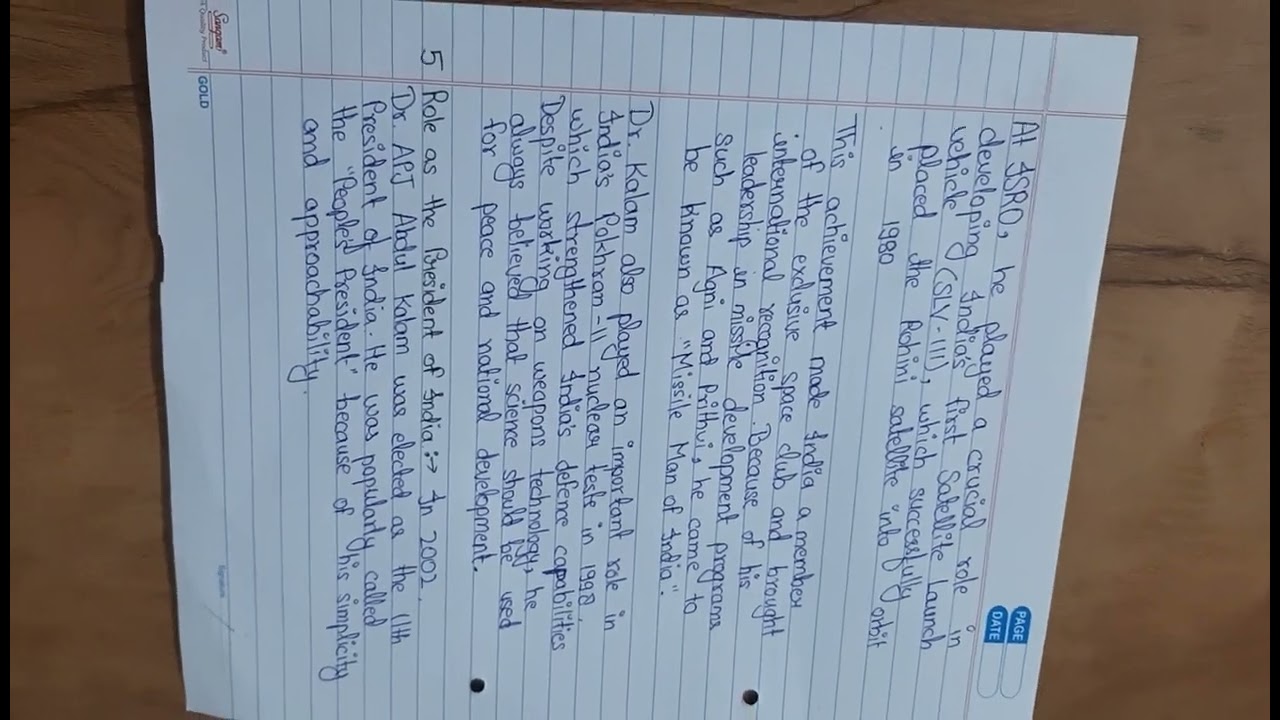 PAGE
DATE
At ISRO, he played a crucial role in
developing India's first Satellite Launch
vehicle (SLV-III), which successfully
placed the Rohini satellite into orbit
in 1980
This achievement made India a member
of the exclusive space club and brought
international recognition. Because of his
leadership in missile development programs
such as Agni and Prithvi, he came to
be known as "Missile Man of India".
Dr. Kalam also played an important role in
India's Pokhran-II nuclear tests in 1998,
which strengthened India's defence capabilities
Despite working on weapons technology, he
always believed that science should be used
for peace and national development.
5 Role as the President of India :→ In 2002,
Dr. APJ Abdul Kalam was elected as the 11th
President of India. He was popularly called
the "People's President" because of his simplicity
and approachability.
Sangam
A Quality Product
GOLD
Signature